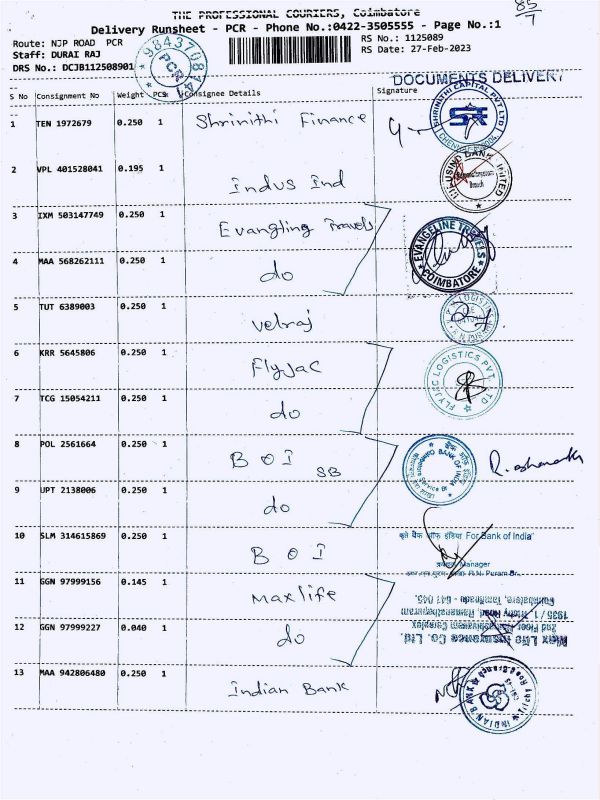 85/7
THE PROFESSIONAL COURIERS, Coimbatore
Delivery Runsheet - PCR - Phone No.:0422-3505555 - Page No.:1
Route: NJP ROAD PCR
RS No.: 1125089
Staff: DURAI RAJ
RS Date: 27-Feb-2023
DRS No.: DCJB112508901
PCR
DOCUMENTS DELIVERY
S No Consignment No Weight PCS Consignee Details Signature
1 TEN 1972679 0.250 1 Shrinithi Finance
SHRINITHI CAPITAL PVT LTD
2 VPL 401528041 0.195 1 Indus Ind
3 IXM 503147749 0.250 1 Evangling Travels
EVANGELINE TRAVELS COIMBATORE
4 MAA 568262111 0.250 1 do
5 TUT 6389003 0.250 1 velraj
6 KRR 5645806 0.250 1 FlyJac
FLYJAC LOGISTICS PVT. LTD
7 TCG 15054211 0.250 1 do
8 POL 2561664 0.250 1 BOI SB
BANK OF INDIA
9 UPT 2138006 0.250 1 do
10 SLM 314615869 0.250 1 BOI
कृते बैंक ऑफ इंडिया For Bank of India
Manager
11 GGN 97999156 0.145 1 Maxlife
Coimbatore, Tamilnadu - 641 045.
12 GGN 97999227 0.040 1 do
Max Life Insurance Co. Ltd.
13 MAA 942806480 0.250 1 Indian Bank
INDIAN BANK